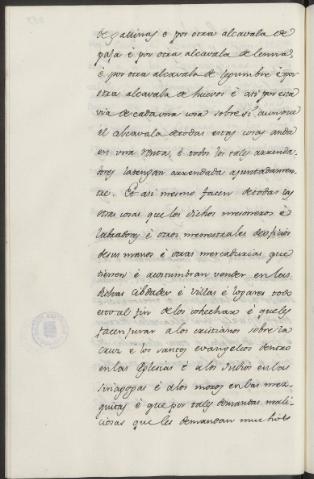 de gallinas e por otra alcavala de
paja é por otra alcavala de lenna,
é por otra alcavala de legumbre é por
otra alcavala de huevos é asi por esta
via de cada una cosa sobre si aunque
el alcavala de todas estas cosas anda
en una renta, é todos los tales arrenda-
dores la tengan arrendada ajuntadamen-
te. Et asi mesmo facen de todas las
otras cosas que los dichos mesoneros é
labradores é otros menestrales de oficios
de sus manos é otras mercadurias que
tienen é acostumbran vender en las
dichas cibdades é villas é logares todo
esto al fin de los cohechar é que les
facen jurar á los cristianos sobre la
cruz e los santos evangelios dentro
en las Iglesias é á los Judios en las
sinagogas é á los moros en las mez-
quitas é que por tales demandas mali-
ciosas que les demandan muchos